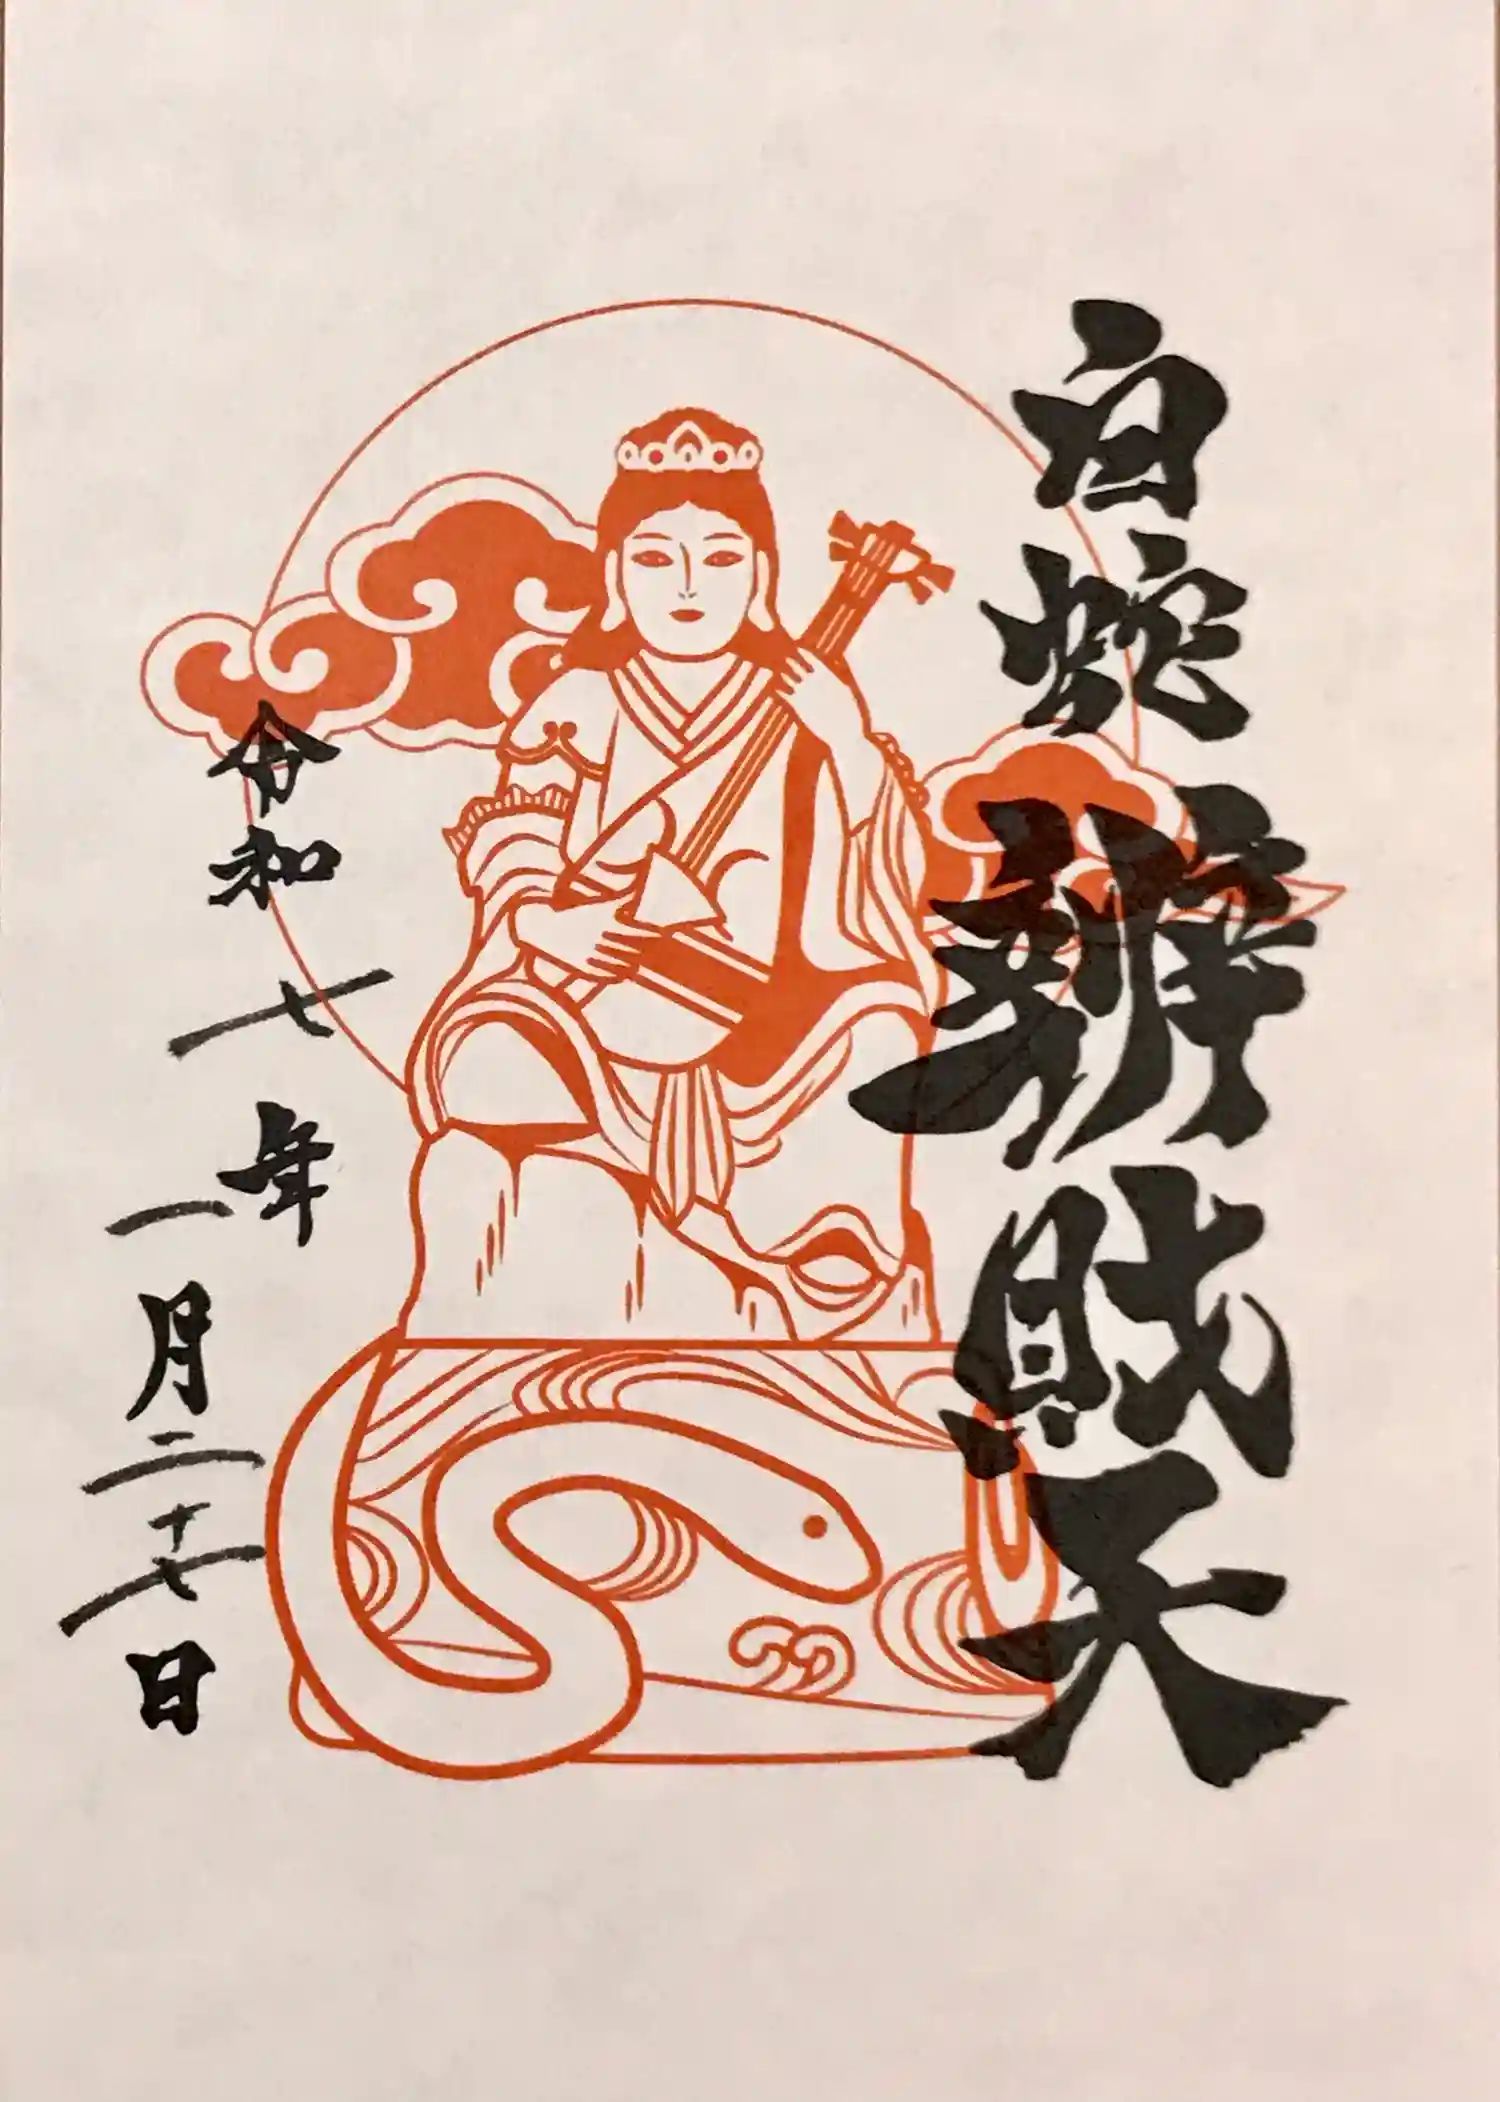 白蛇辨財天
令和七年
一月二十七日